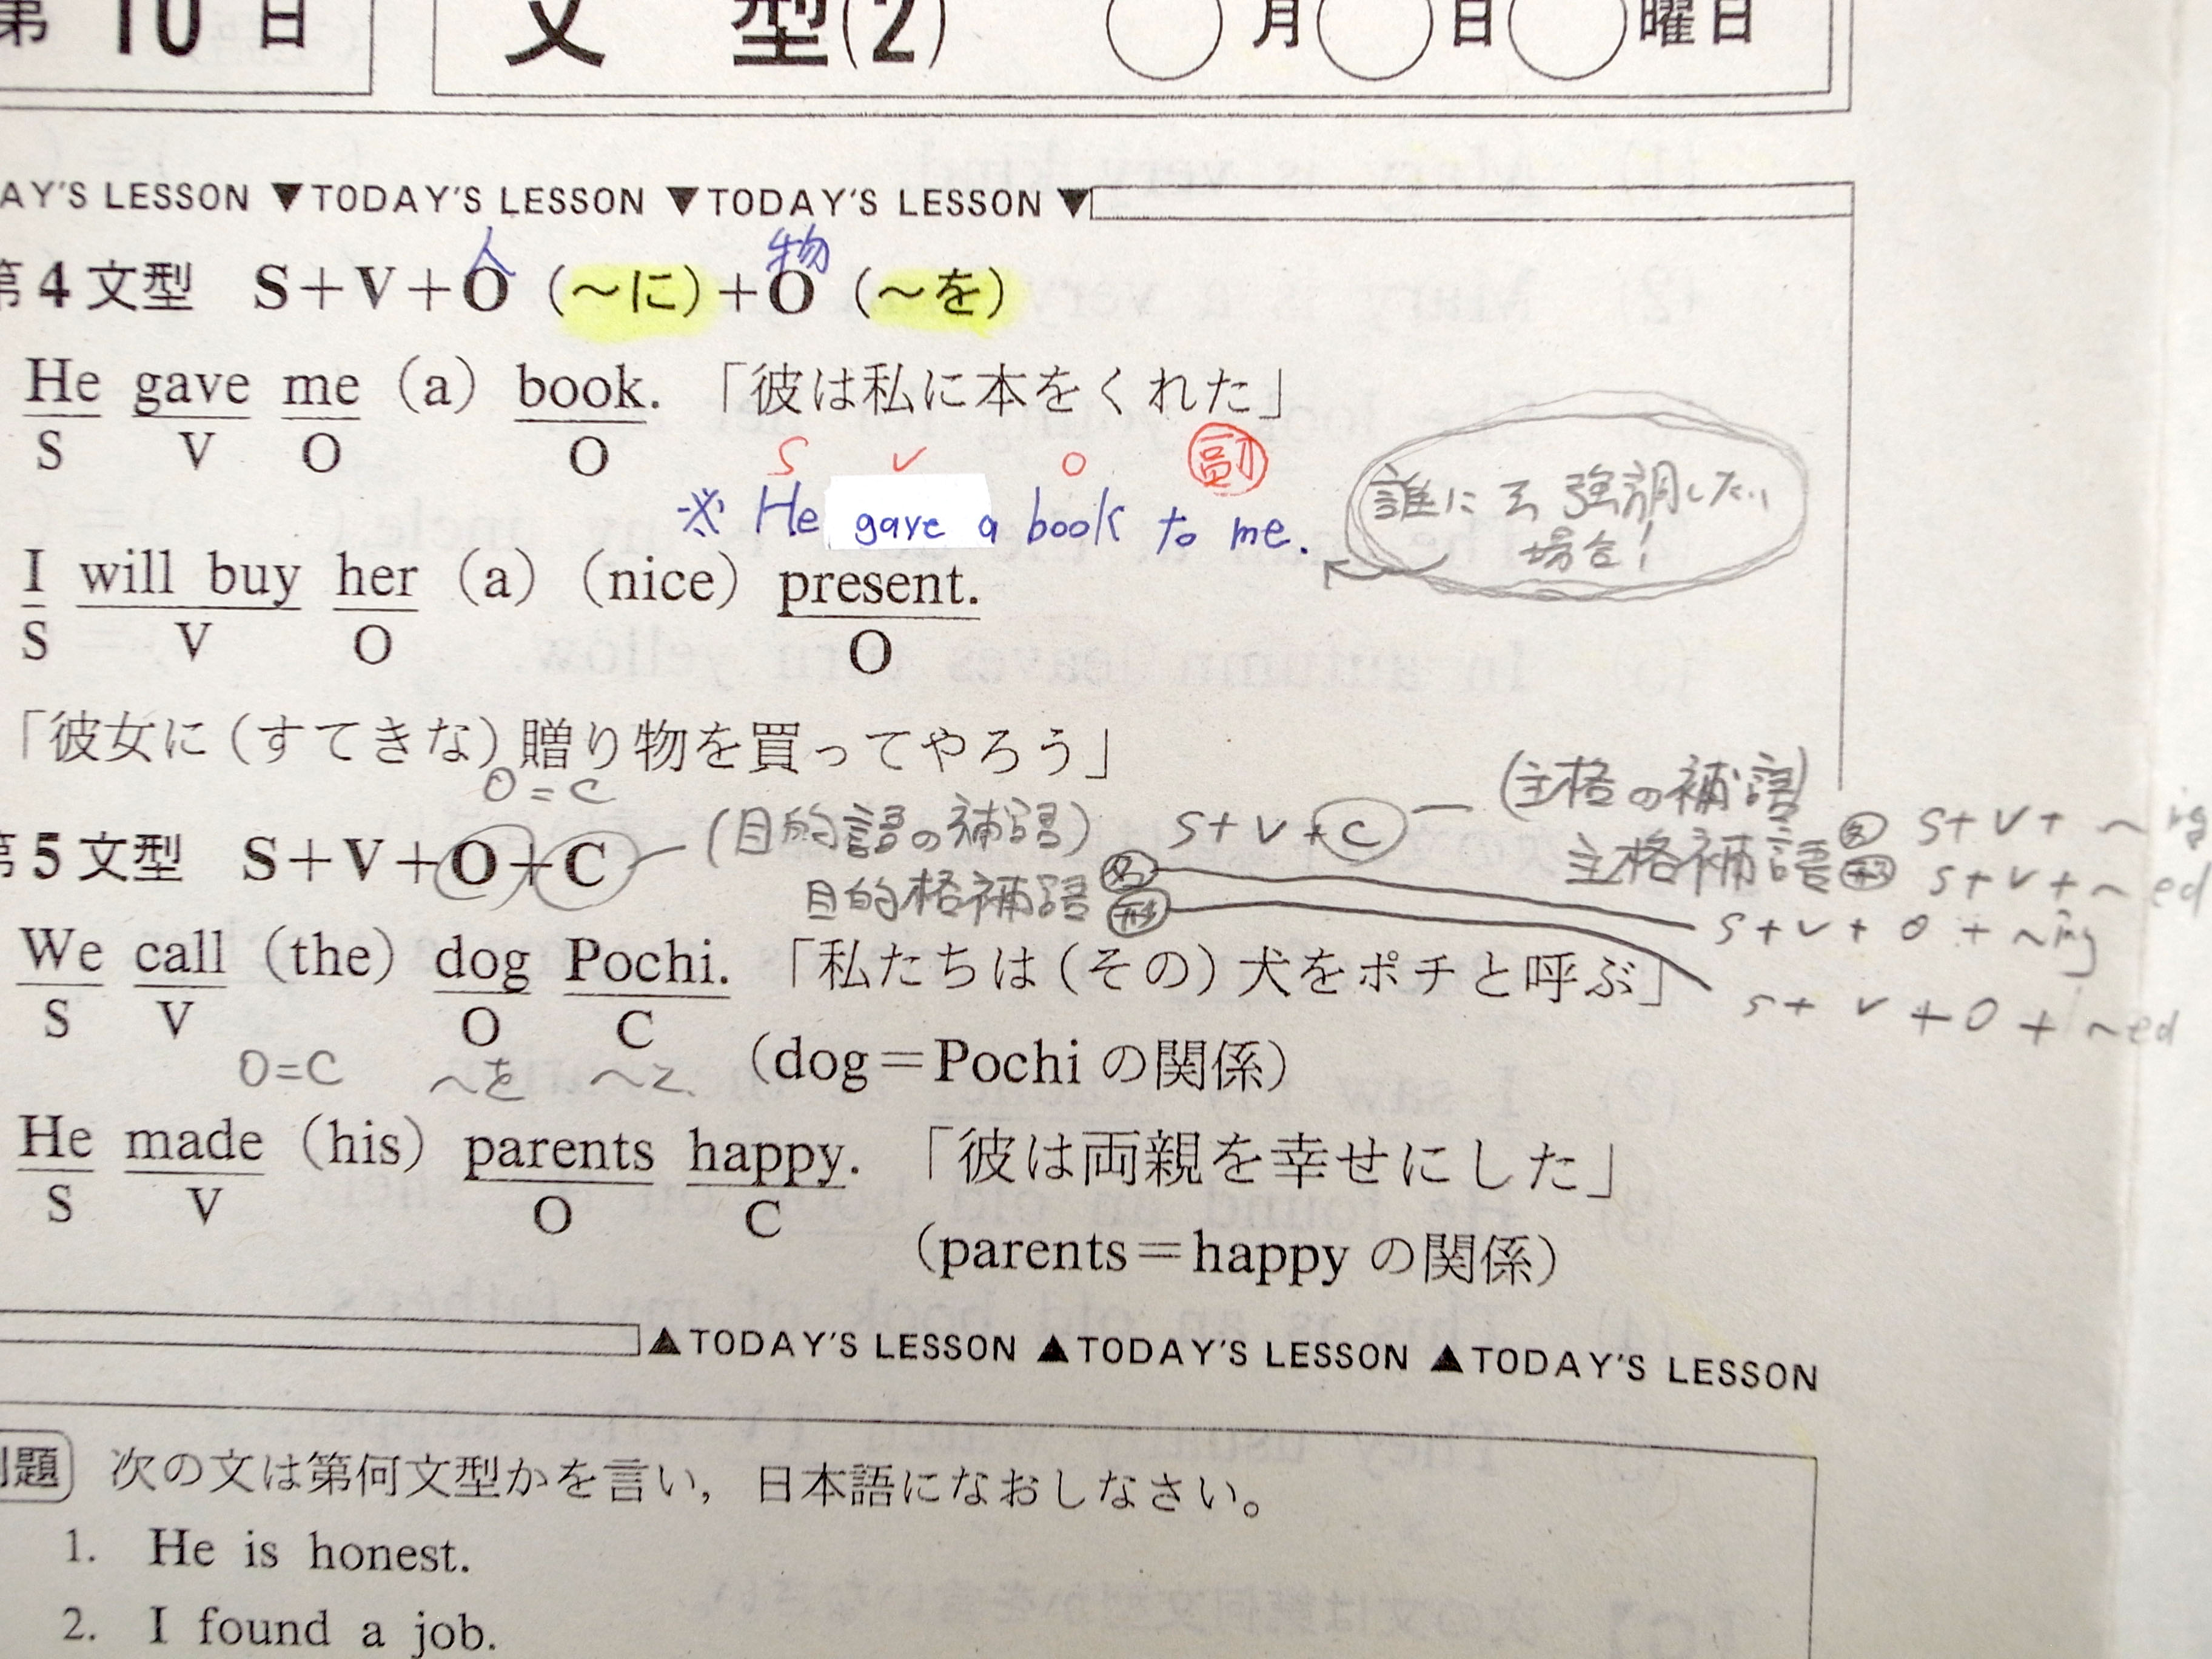 第 10 日 文 型(2) 月 日 曜日
AY'S LESSON ▼TODAY'S LESSON ▼TODAY'S LESSON ▼
人 物
第4文型 S+V+O (〜に)+O (〜を)
He gave me (a) book. 「彼は私に本をくれた」
S V O O
S V O 副
※ He gave a book to me.
誰にを強調したい
場合!
I will buy her (a) (nice) present.
S V O O
「彼女に(すてきな)贈り物を買ってやろう」
O=C
第5文型 S+V+O+C (目的語の補語) S+V+C (主格の補語)
目的格補語 名 形 主格補語 名 形
S+V+〜ing
S+V+〜ed
S+V+O+〜ing
S+V+O+〜ed
We call (the) dog Pochi. 「私たちは(その)犬をポチと呼ぶ」
S V O C
O=C 〜を 〜と (dog=Pochi の関係)
He made (his) parents happy. 「彼は両親を幸せにした」
S V O C
(parents=happy の関係)
▲TODAY'S LESSON ▲TODAY'S LESSON ▲TODAY'S LESSON
例題 次の文は第何文型かを言い, 日本語になおしなさい。
1. He is honest.
2. I found a job.